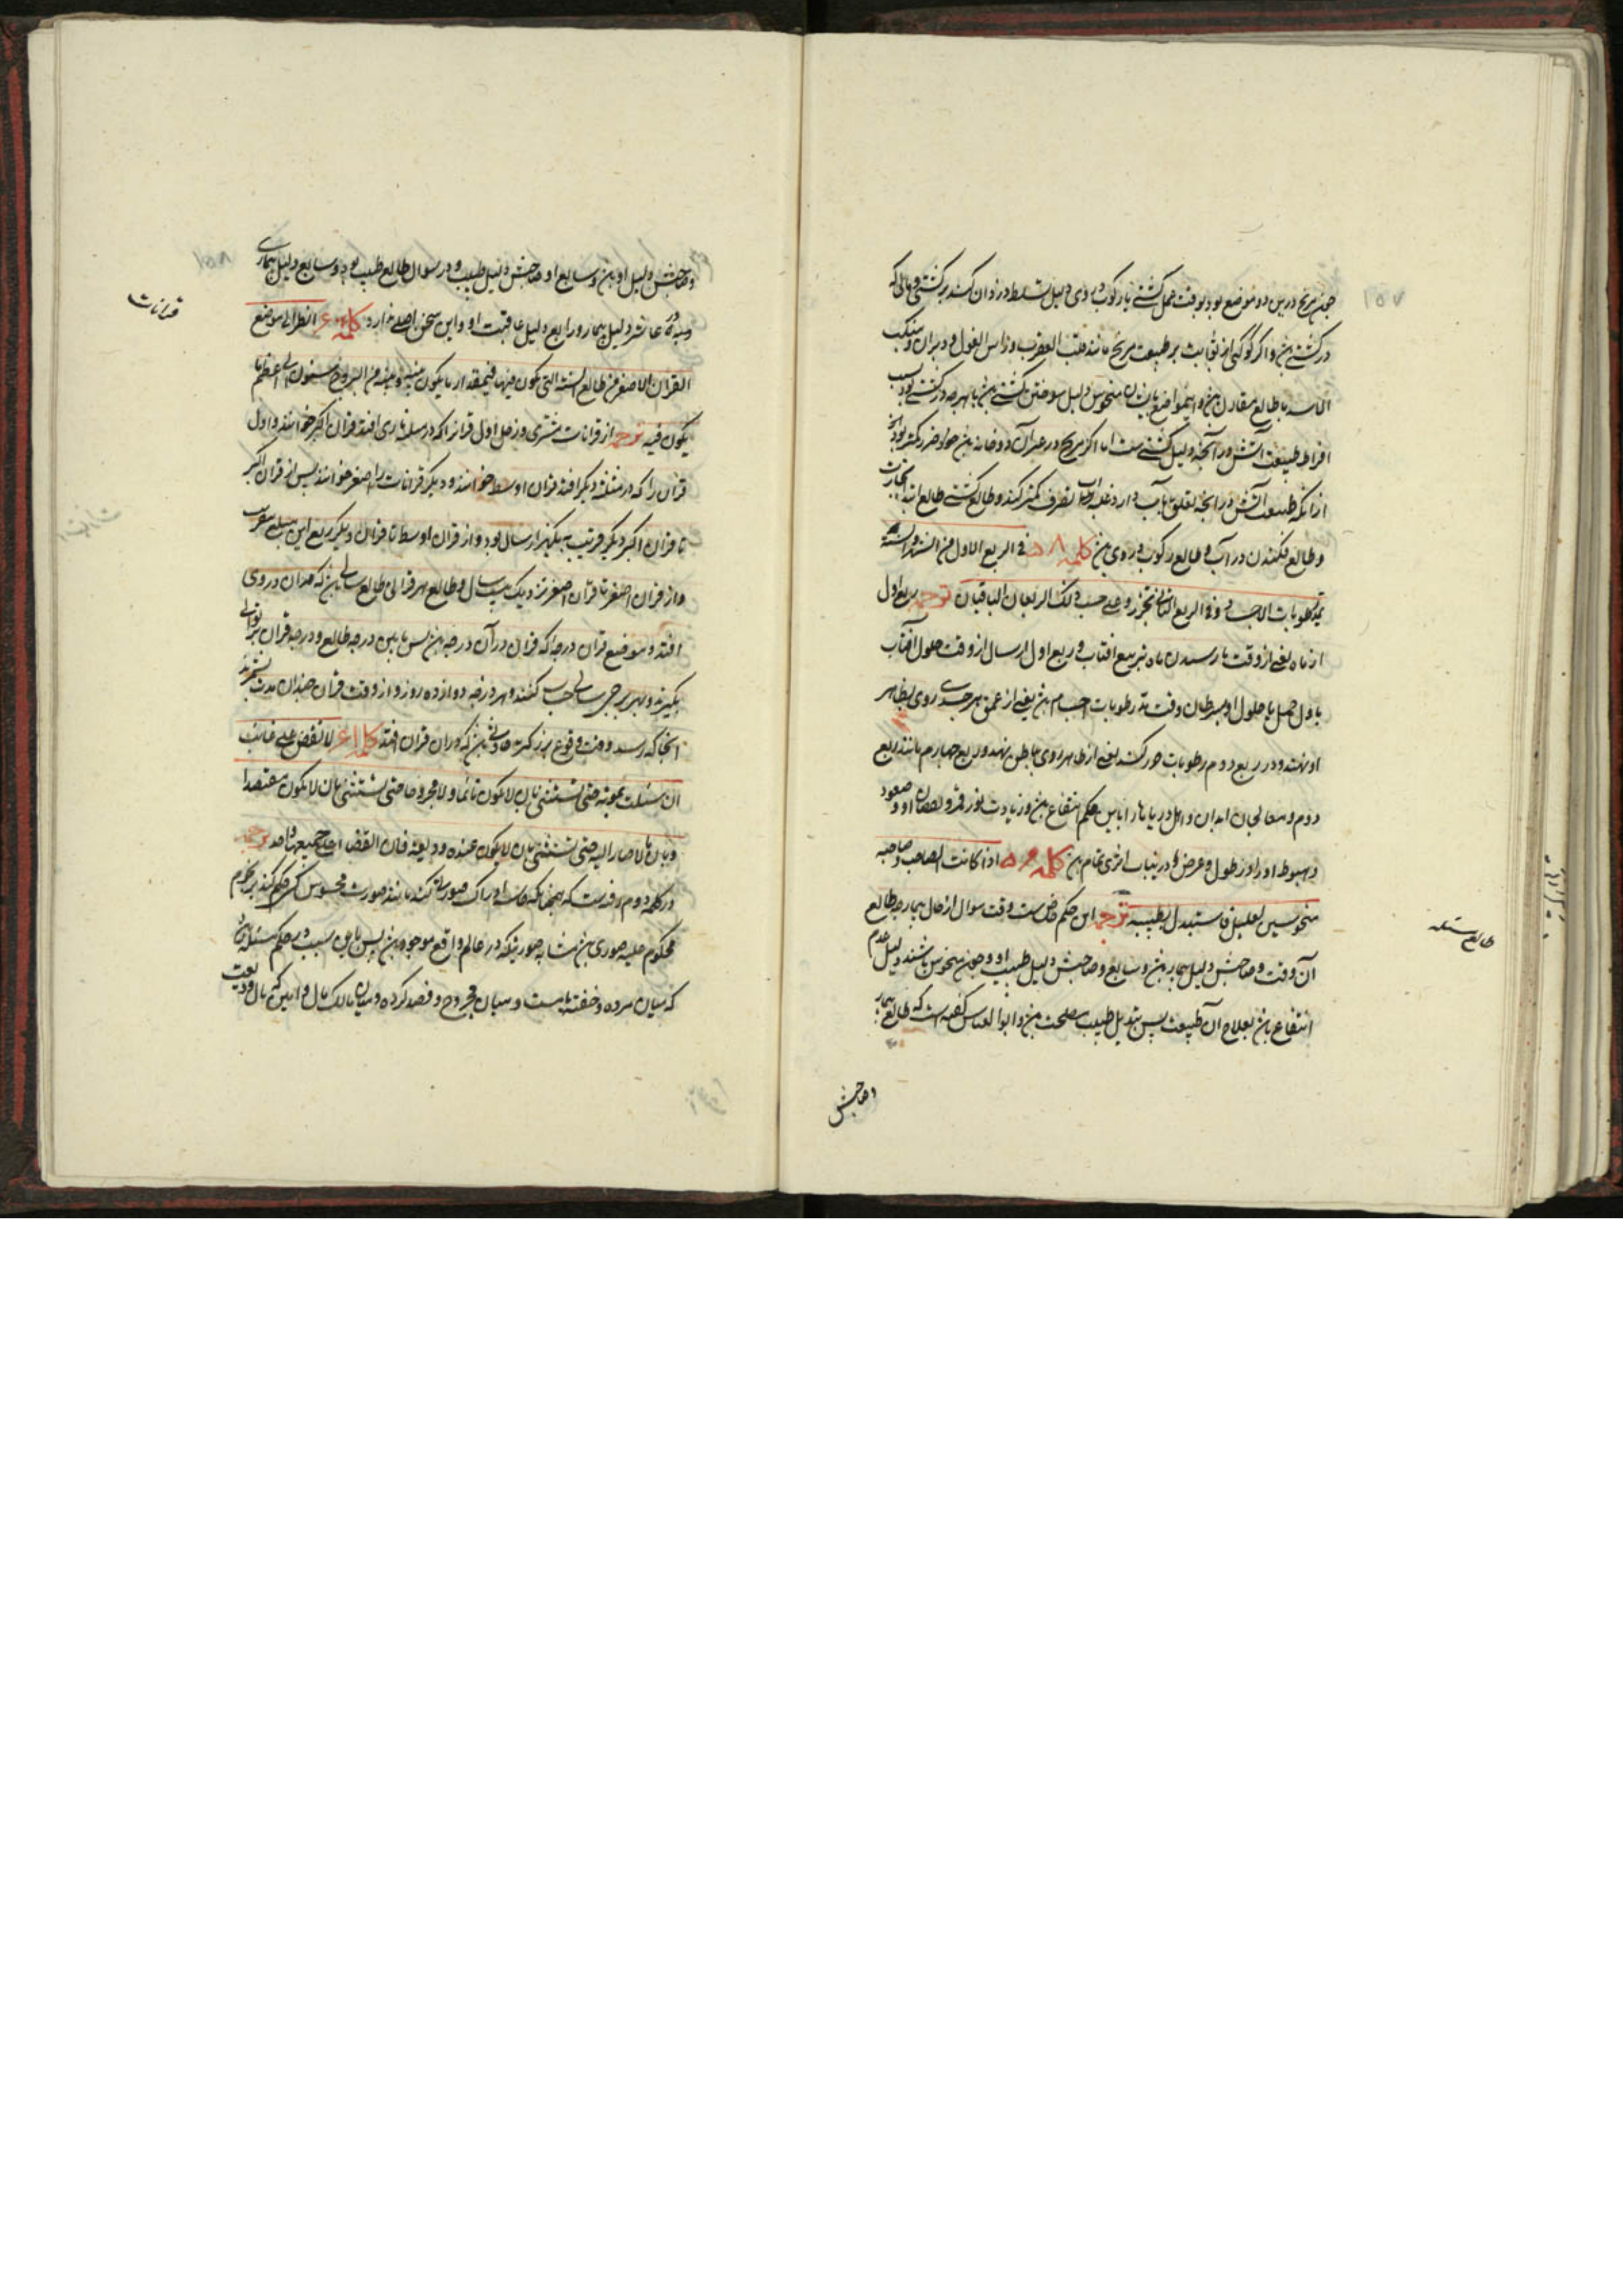 ۱۵۷
چون مریخ درین دو موضع بود بوقت عمل کشتی یا رکوب در وی دلیل تسلط دزدان کنند بر کشتی و مالی که
در کشتی بود و اگر کوکبی از ثوابت بر طبیعت مریخ مانند قلب العقرب و راس الغول و دبران و منکب
الاسد با طالع مقارن بود و این مواضع منحوس دلیل سوختن کشتی بود با هرچه در کشتی بود بسبب
افراط طبیعت آتش در آنچه دلیل کشتی ست اما اگر مریخ در غیر آن دو خانه بود ضرر کمتر بود
از آنکه طبیعت آتش در آنچه تعلق بآب دارد تصرف کمتر کند و طالع کشتی طالع ابتداء نجارت
و طالع فکندن در آب و طالع رکوب در وی کلمه ۵۸ فی الربع الاول من الشهر و السنة
تمد رطوبات الاجساد و فی الربع الثانی تجزر و علی حسب ذلک الربعان الباقیان ترجمه ربع اول
از ماه یعنی از وقت تا رسیدن ماه بتربیع آفتاب و ربع اول از سال از وقت حلول آفتاب
باول حمل تا حلول او بسرطان وقت مد رطوبات اجسام بود یعنی از عمق هر جسدی روی بظاهر
او نهند و در ربع دوم رطوبات جزر کنند یعنی از ظاهر روی بباطن نهند و ربع چهارم مانند ربع
دوم و معالجان ابدان و اهل دریا را باین حکم انتفاع بود و زیادت نور قمر و نقصان او و صعود
و هبوط او را و طول و عرض را درین باب اثری تمام بود کلمه ۵۹ اذا کانت السابع و صاحبه
منحوسین لعلیل فاستبدل بطبیبه ترجمه این حکم خاص ست وقت سوال از حال بیمار چه طالع
آن وقت و صاحبش دلیل بیمار بود و سابع و صاحبش دلیل طبیب او و چون منحوس باشند دلیل عدم
انتفاع بود بعلاج آن طبیب پس تبدیل طبیب مصلحت بود و ابوالعباس گفته است که طالع بیمار
وصاحبش
طالع مسئله
۱۵۸
وصاحبش دلیل او بود و سابع او و صاحبش دلیل طبیب و در سوال طالع طبیب بود و سابع دلیل بیماری
عاشر دلیل بیمار و رابع دلیل عاقبت او و این سخن اصلی ندارد کلمه ۶۰ انظر الی موضع
القران الاصغر من طالع السنة التی یکون فیها فبمقدار ما یکون بینه و بینه من البروج سنون الی اعظم ما
یکون فیه ترجمه از قرانات مشتری و زحل اول قرانرا که در مثلثه ناری افتد قران اکبر خوانند و اول
قران را که در مثلثه دیگر افتد قران اوسط خوانند و دیگر قرانات را اصغر خوانند پس از قران اکبر
تا قران اکبر دیگر قریب به یکهزار سال بود و از قران اوسط تا قران دیگر ربع این مبلغ بتقریب
و از قران اصغر تا قران اصغر نزدیک بیست سال و طالع هر قرانی طالع سالی بود که قران در وی
افتد و موضع قران درجه که قران در آن درجه بود پس مابین درجه طالع و درجه قران بر توالی
بگیرند و بهر برجی سالی حساب کنند و هر درجه دوازده روز و از وقت قران چندان مدت بشمرند
آنجا که رسد وقت وقوع بزرگترین حادثه بود که در آن قران افتد کلمه ۶۱ لا تقض علی غائب
ان سئلت بموته حتی تستثنی بان لا یکون نائما و لا مجروحا حتی تستثنی بان لا یکون مفتصدا
و بان مالا صار الیه حتی تستثنی بان لا یکون عنده ودیعة فان القضاء علی جمیعها واحد ترجمه
در کلمه دوم رفته ست که همچنانکه ادراک صورتی کند مانند صورت محسوس حکم کند بر حکوم
محکوم علیه صوری بود مشابه صورتیکه در عالم واقع موجود بود پس باین سبب در حکم مسئله
که میان مرده و خفته یا مست و میان مجروح و فصد کرده و میان مالک مال و امین که مال ودیعت
قرانات